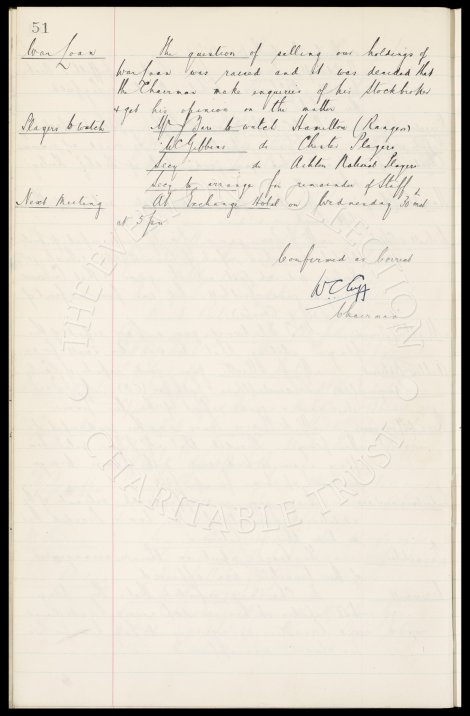 51
War Loan The question of selling our holdings of
War Loan was raised and it was decided that
the Chairman make enquiries of his Stockbroker
& get his opinion on the matter
Players to watch Mr to watch Hamilton (Rangers)
W C Gibbins do Chester Players
Secy do Ashton National Players
Secy to arrange for remainder of Staff
Next Meeting At Exchange Hotel on Wednesday 30 inst
at 5 pm
Confirmed as Correct
W. C. Cuff
Chairman
THE EVERTON COLLECTION
CHARITABLE TRUST